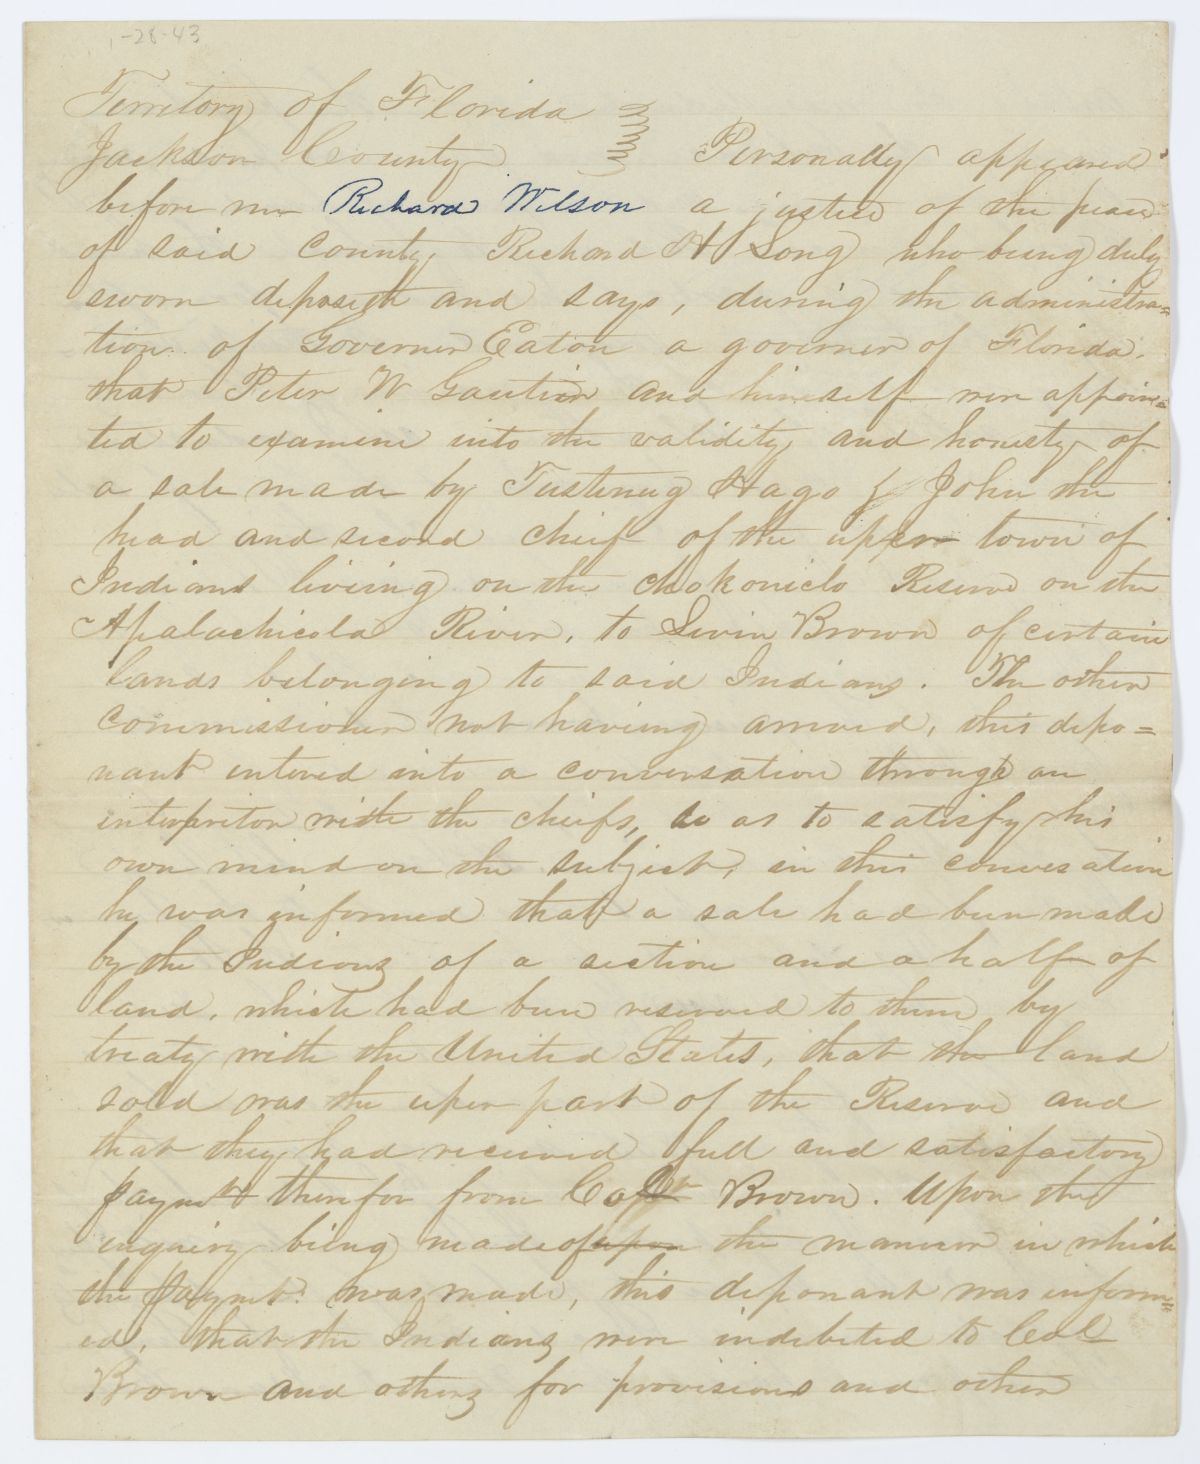 1-28-43
Territory of Florida
Jackson County Personally appeared
before me Richard Wilson a justice of the peace
of said County, Richard H Long who being duly
sworn deposeth and says, during the administra=
tion of Governor Eaton a governor of Florida.
that Peter W Gautier and himself were appoin=
ted to examine into the validity and honesty of
a sale made by Tustenug Hago & John the
head and second chief of the upper town of
Indians living on the Chokoniclo Reserve on the
Apalachicola River, to Levin Brown of certain
lands belonging to said Indians. The other
Commissioner not having arrived, this depo=
nant entered into a conversation through an
interpritor with the chiefs, so as to satisfy his
own mind on the subject, in this conversation
he was informed that a sale had been made
by the Indians of a section and a half of
land, which had been reserved to them by
treaty with the United States, that the land
sold was the uper part of the Reserve and
that they had received full and satisfactory
paymt therefor from Brown. Upon the
enquiry being made of upon the manner in which
the paymt. was made, this deponant was inform=
ed, that the Indians were indebted to Col
Brown and others for provisions and other